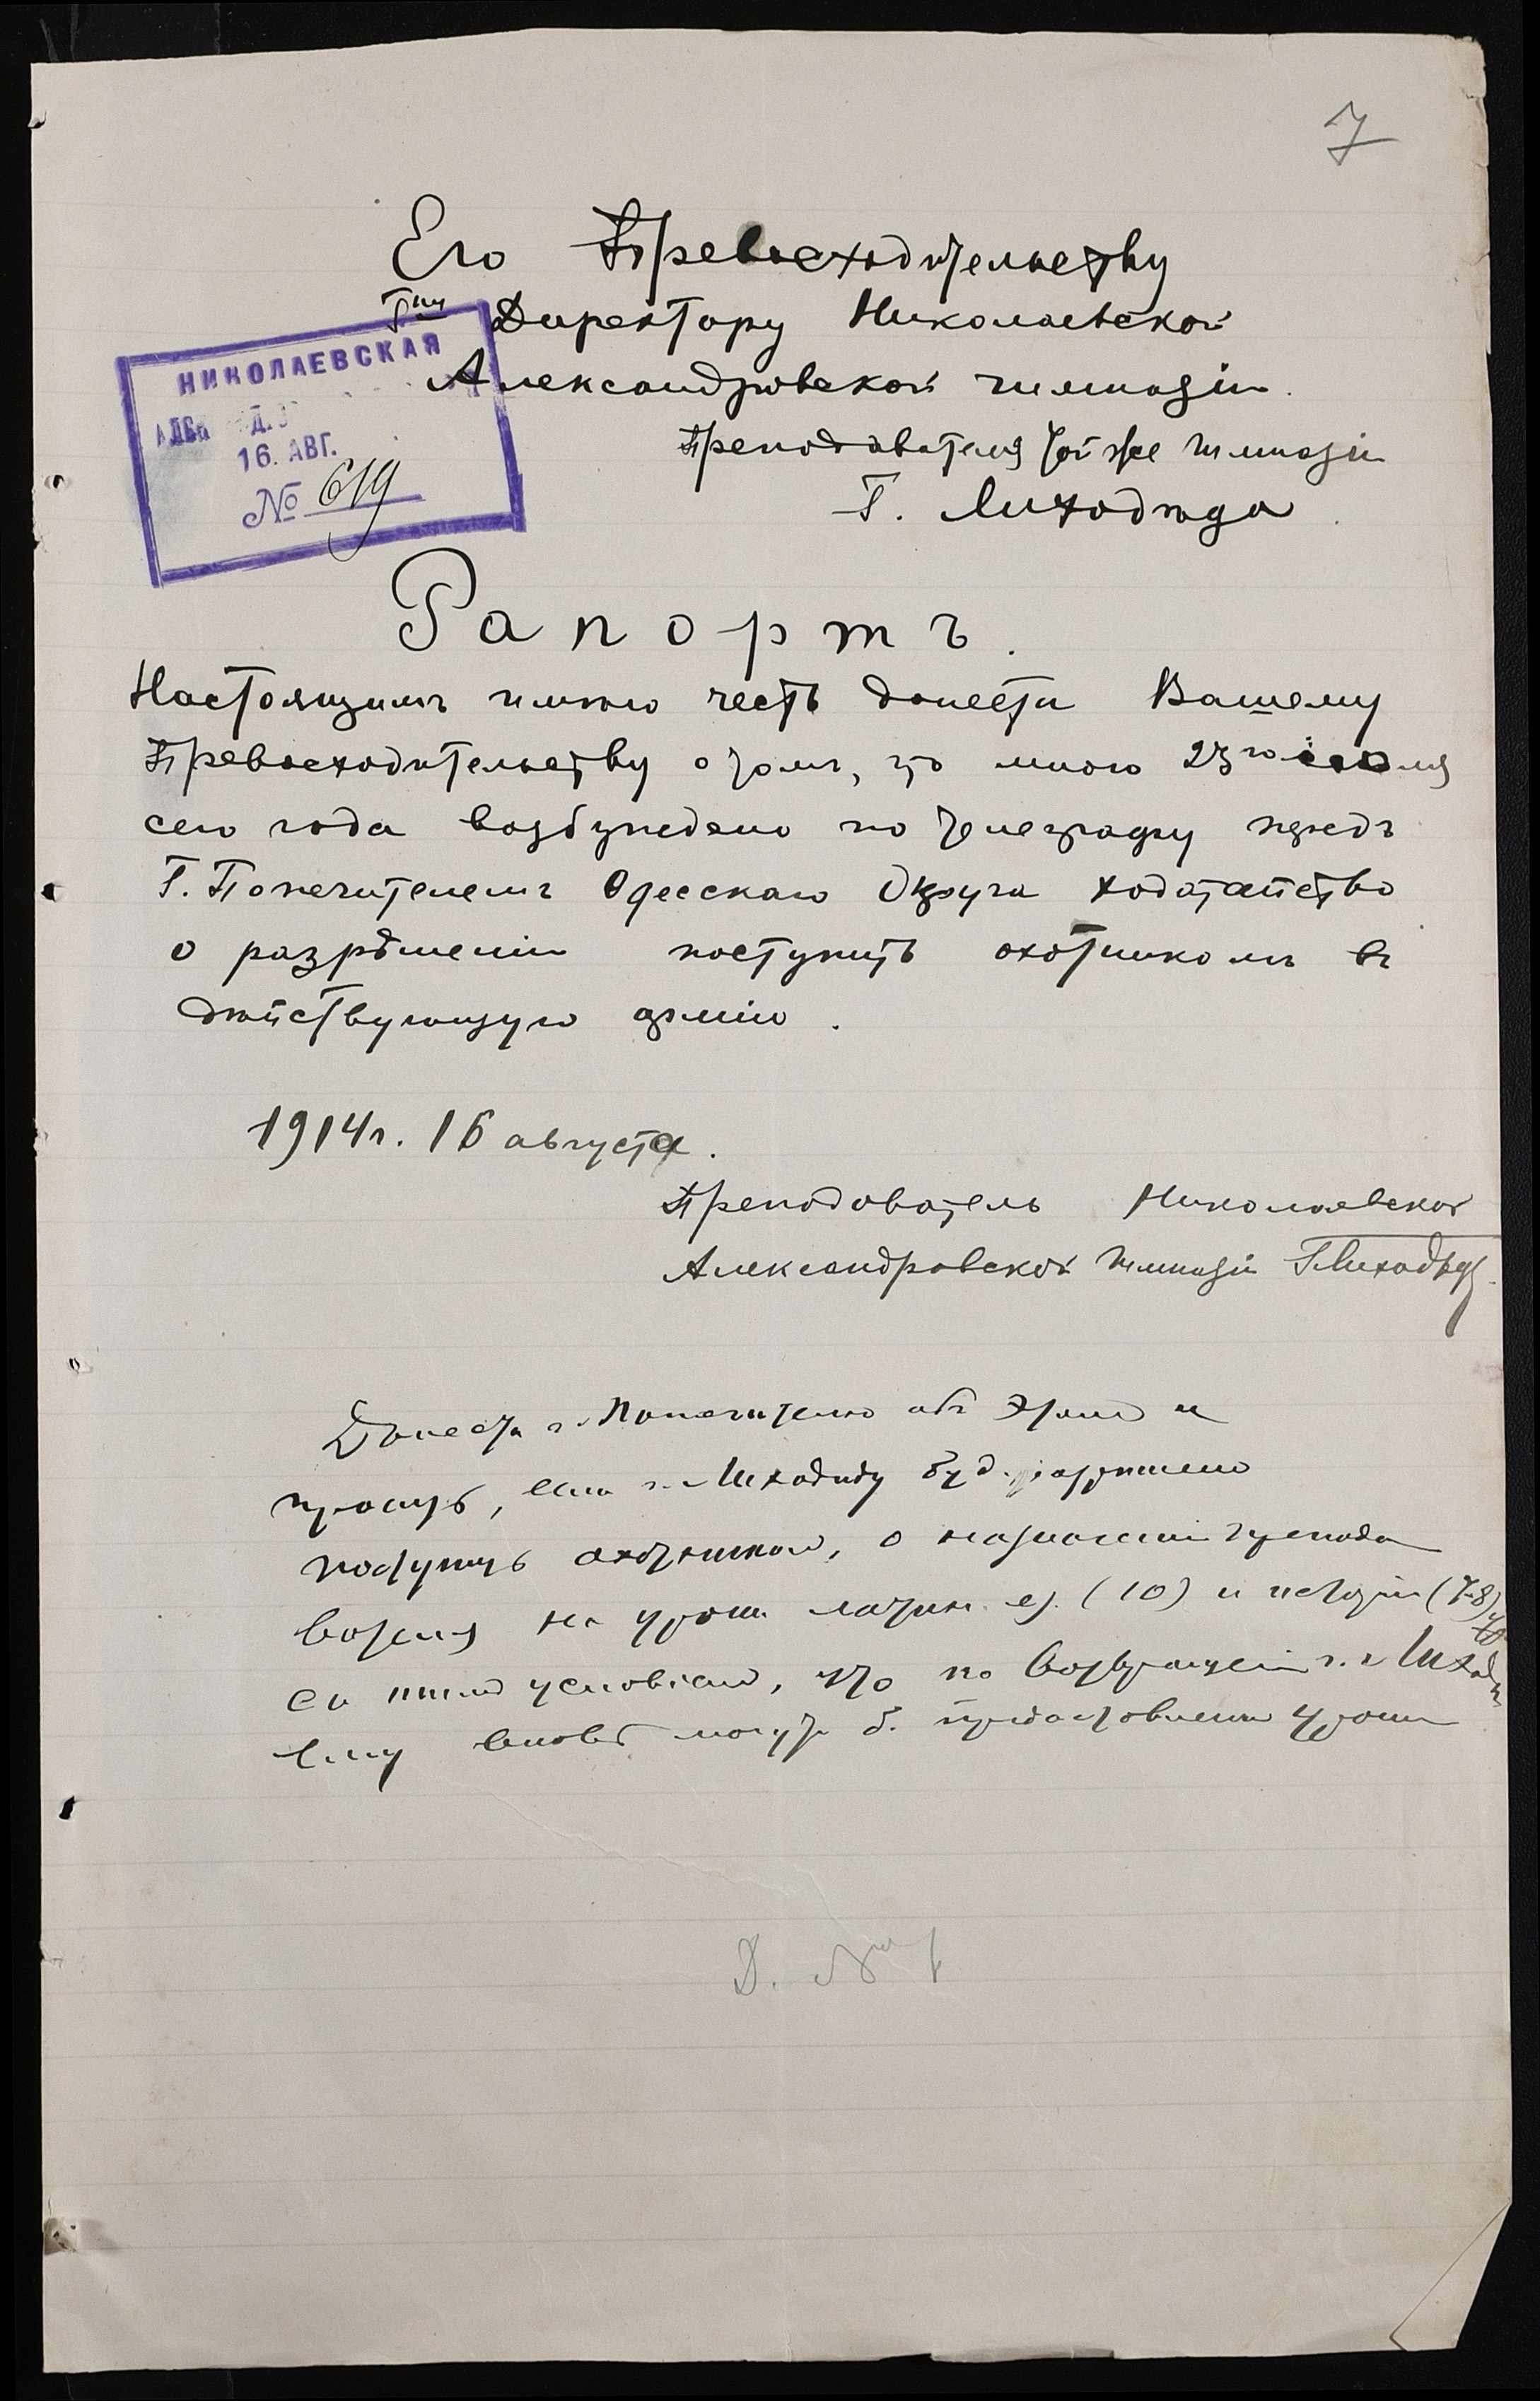 7
Его Превосходительству
Гну Директору Николаевской
Александровской гимназіи.
Преподавателя той же гимназіи
Г. Лиходѣда.
НИКОЛАЕВСКАЯ
16. АВГ.
№ 619
Рапортъ.
Настоящимъ имѣю честь донести Вашему
Превосходительству о томъ, что мною 23го іюля
сего года возбуждено по телеграфу передъ
Г. Попечителемъ Одесскаго Округа ходатайство
о разрѣшеніи поступить охотникомъ въ
дѣйствующую армію.
1914г. 16 августа.
Преподаватель Николаевской
Александровской гимназіи Г Лиходѣд
Донести г. Попечителю объ этомъ и
просить, если г. Лиходѣду буд. разрѣшено
поступить охотникомъ, о назначеніи препода
вателя на уроки латин. яз. (10) и исторіи (7-8)
съ тѣмъ условіемъ, что по возвращеніи г. Лиход
ему вновь могутъ б. предоставлены уроки
Д. № 1